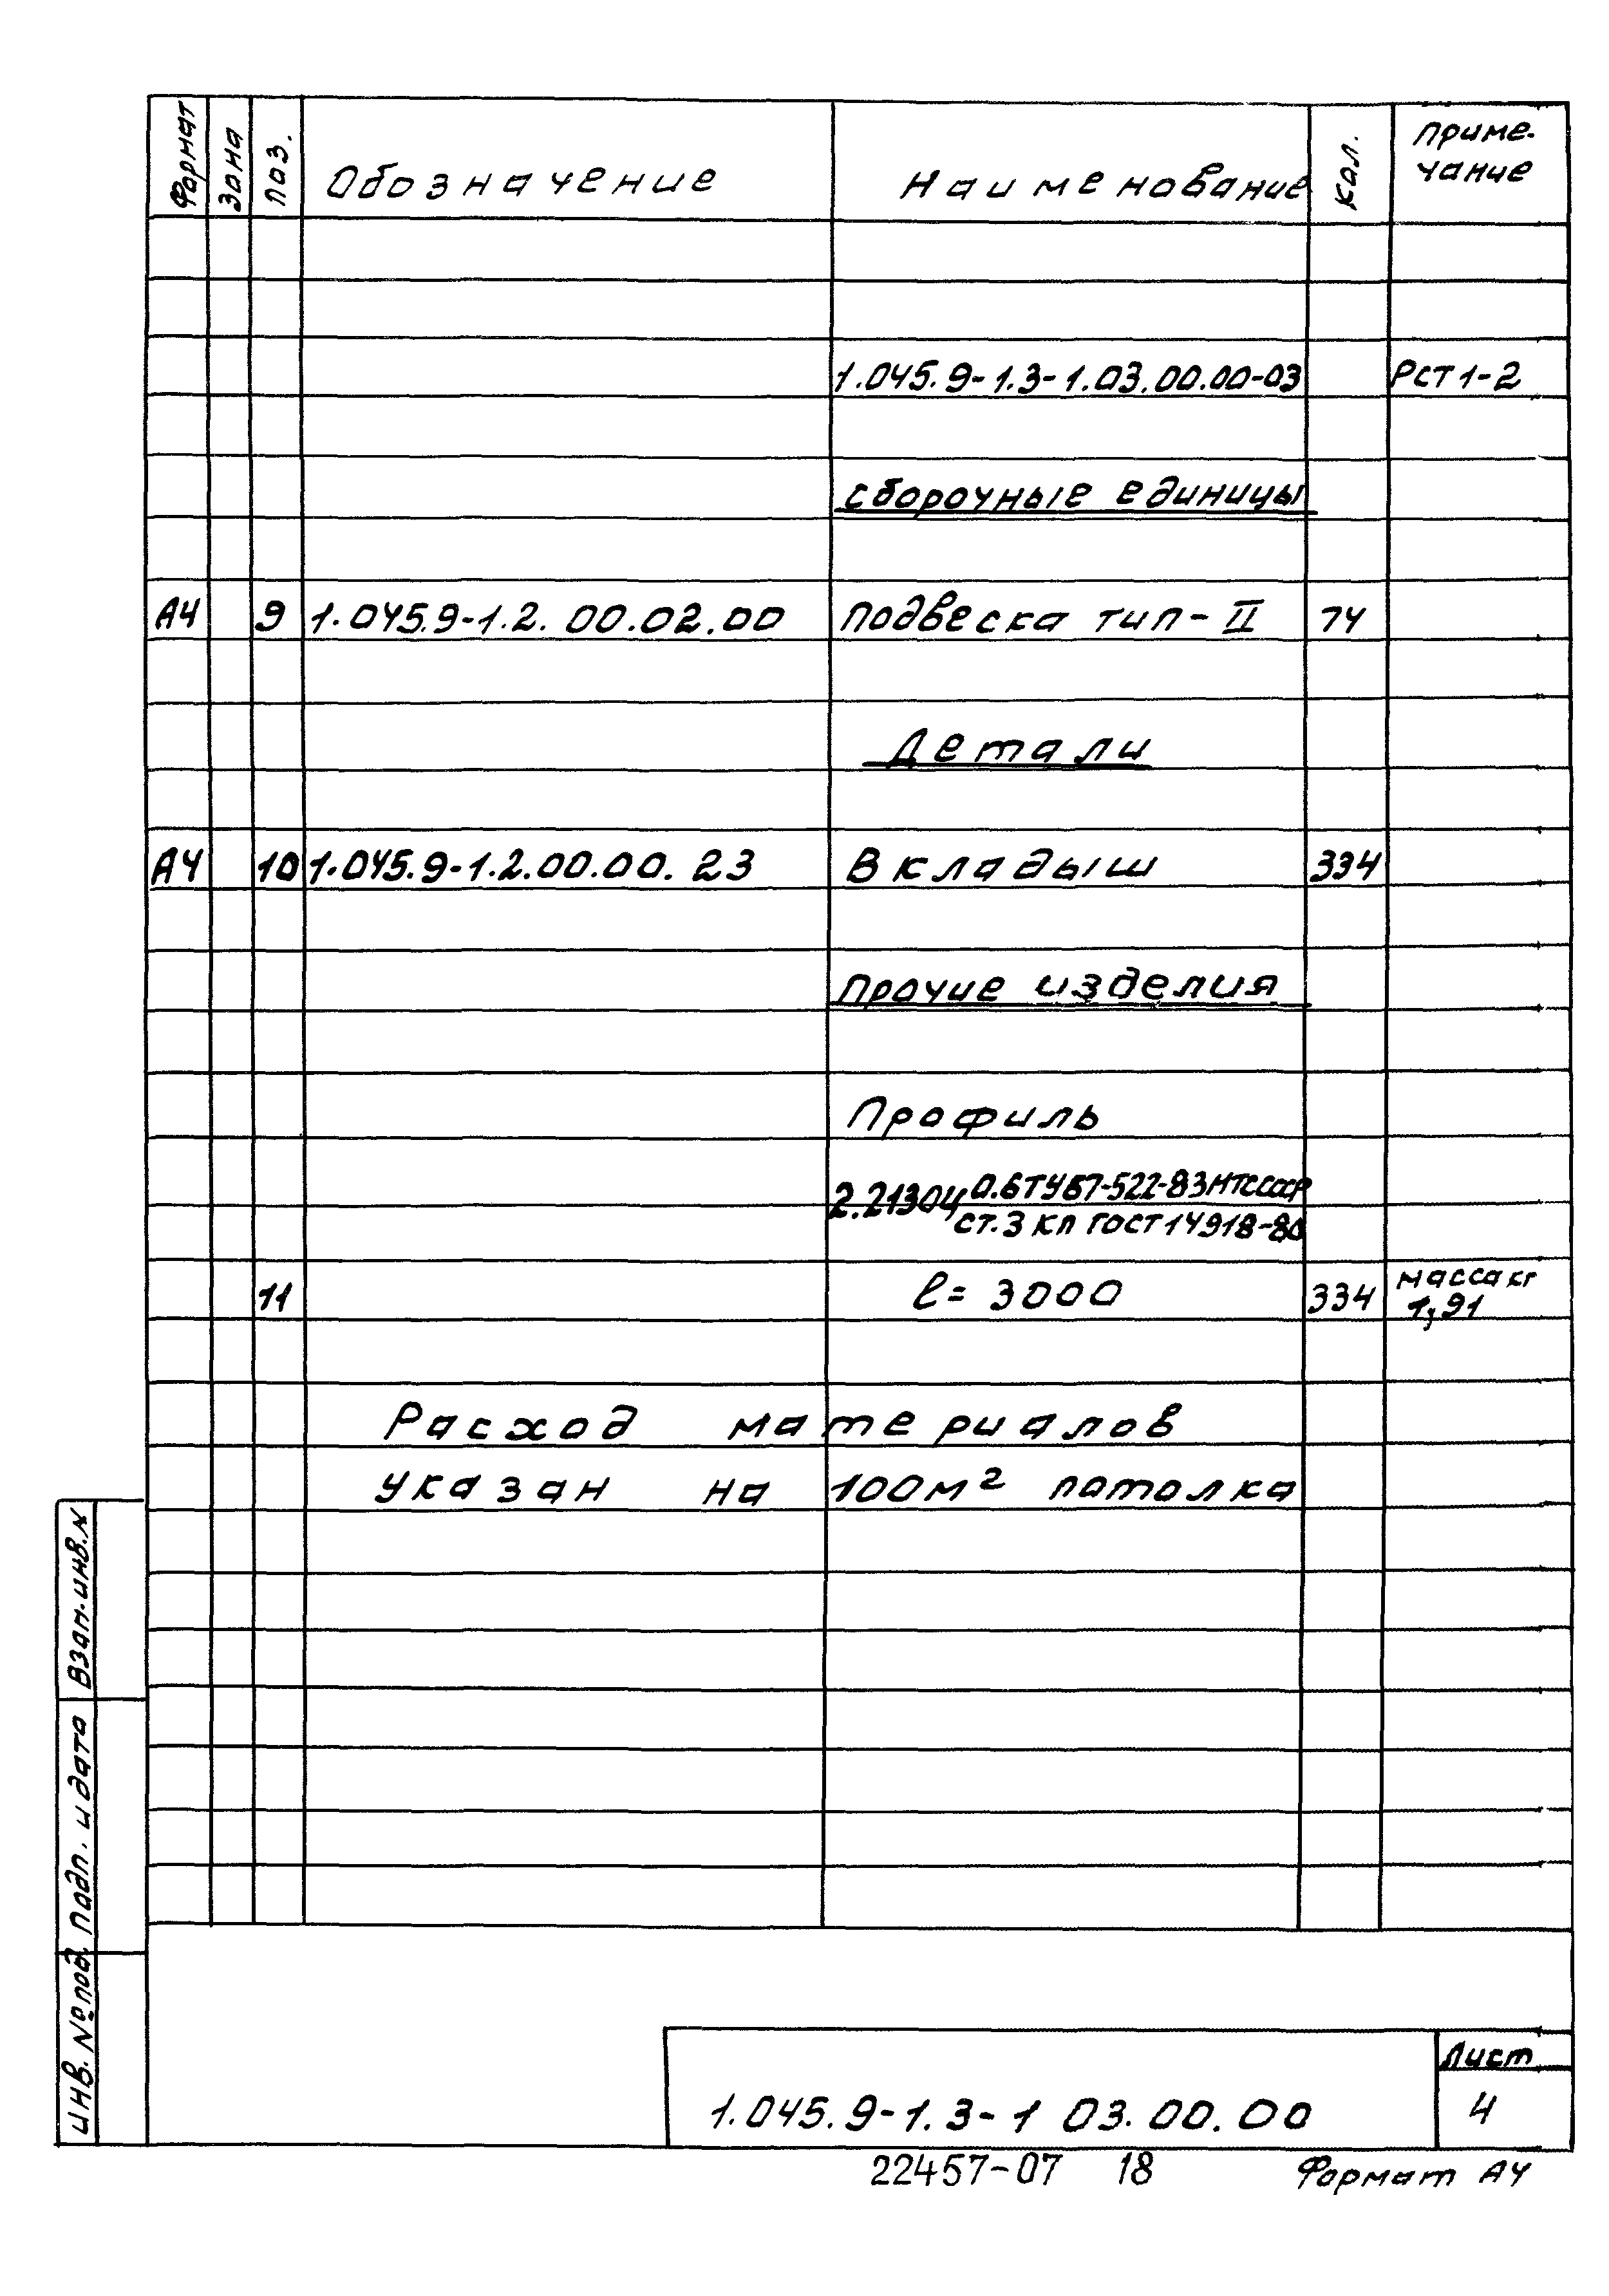 Формат Зона Поз. Обозначение Наименование Кол. Приме-
чание
1.045.9-1.3-1.03.00.00-03 РСТ1-2
Сборочные единицы
А4 9 1.045.9-1.2.00.02.00 Подвеска тип-II 74
Детали
А4 10 1.045.9-1.2.00.00.23 Вкладыш 334
Прочие изделия
Профиль
2.21304 0.6ТУ67-522-83МТСССР
ст.3 кп ГОСТ14918-80
11 ℓ=3000 334 масса кг
1,91
Расход материалов
указан на 100м² потолка
Взам.инв.N
Подп. и дата
Инв. №подл.
1.045.9-1.3-1 03.00.00
Лист
4
22457-07 18 Формат А4